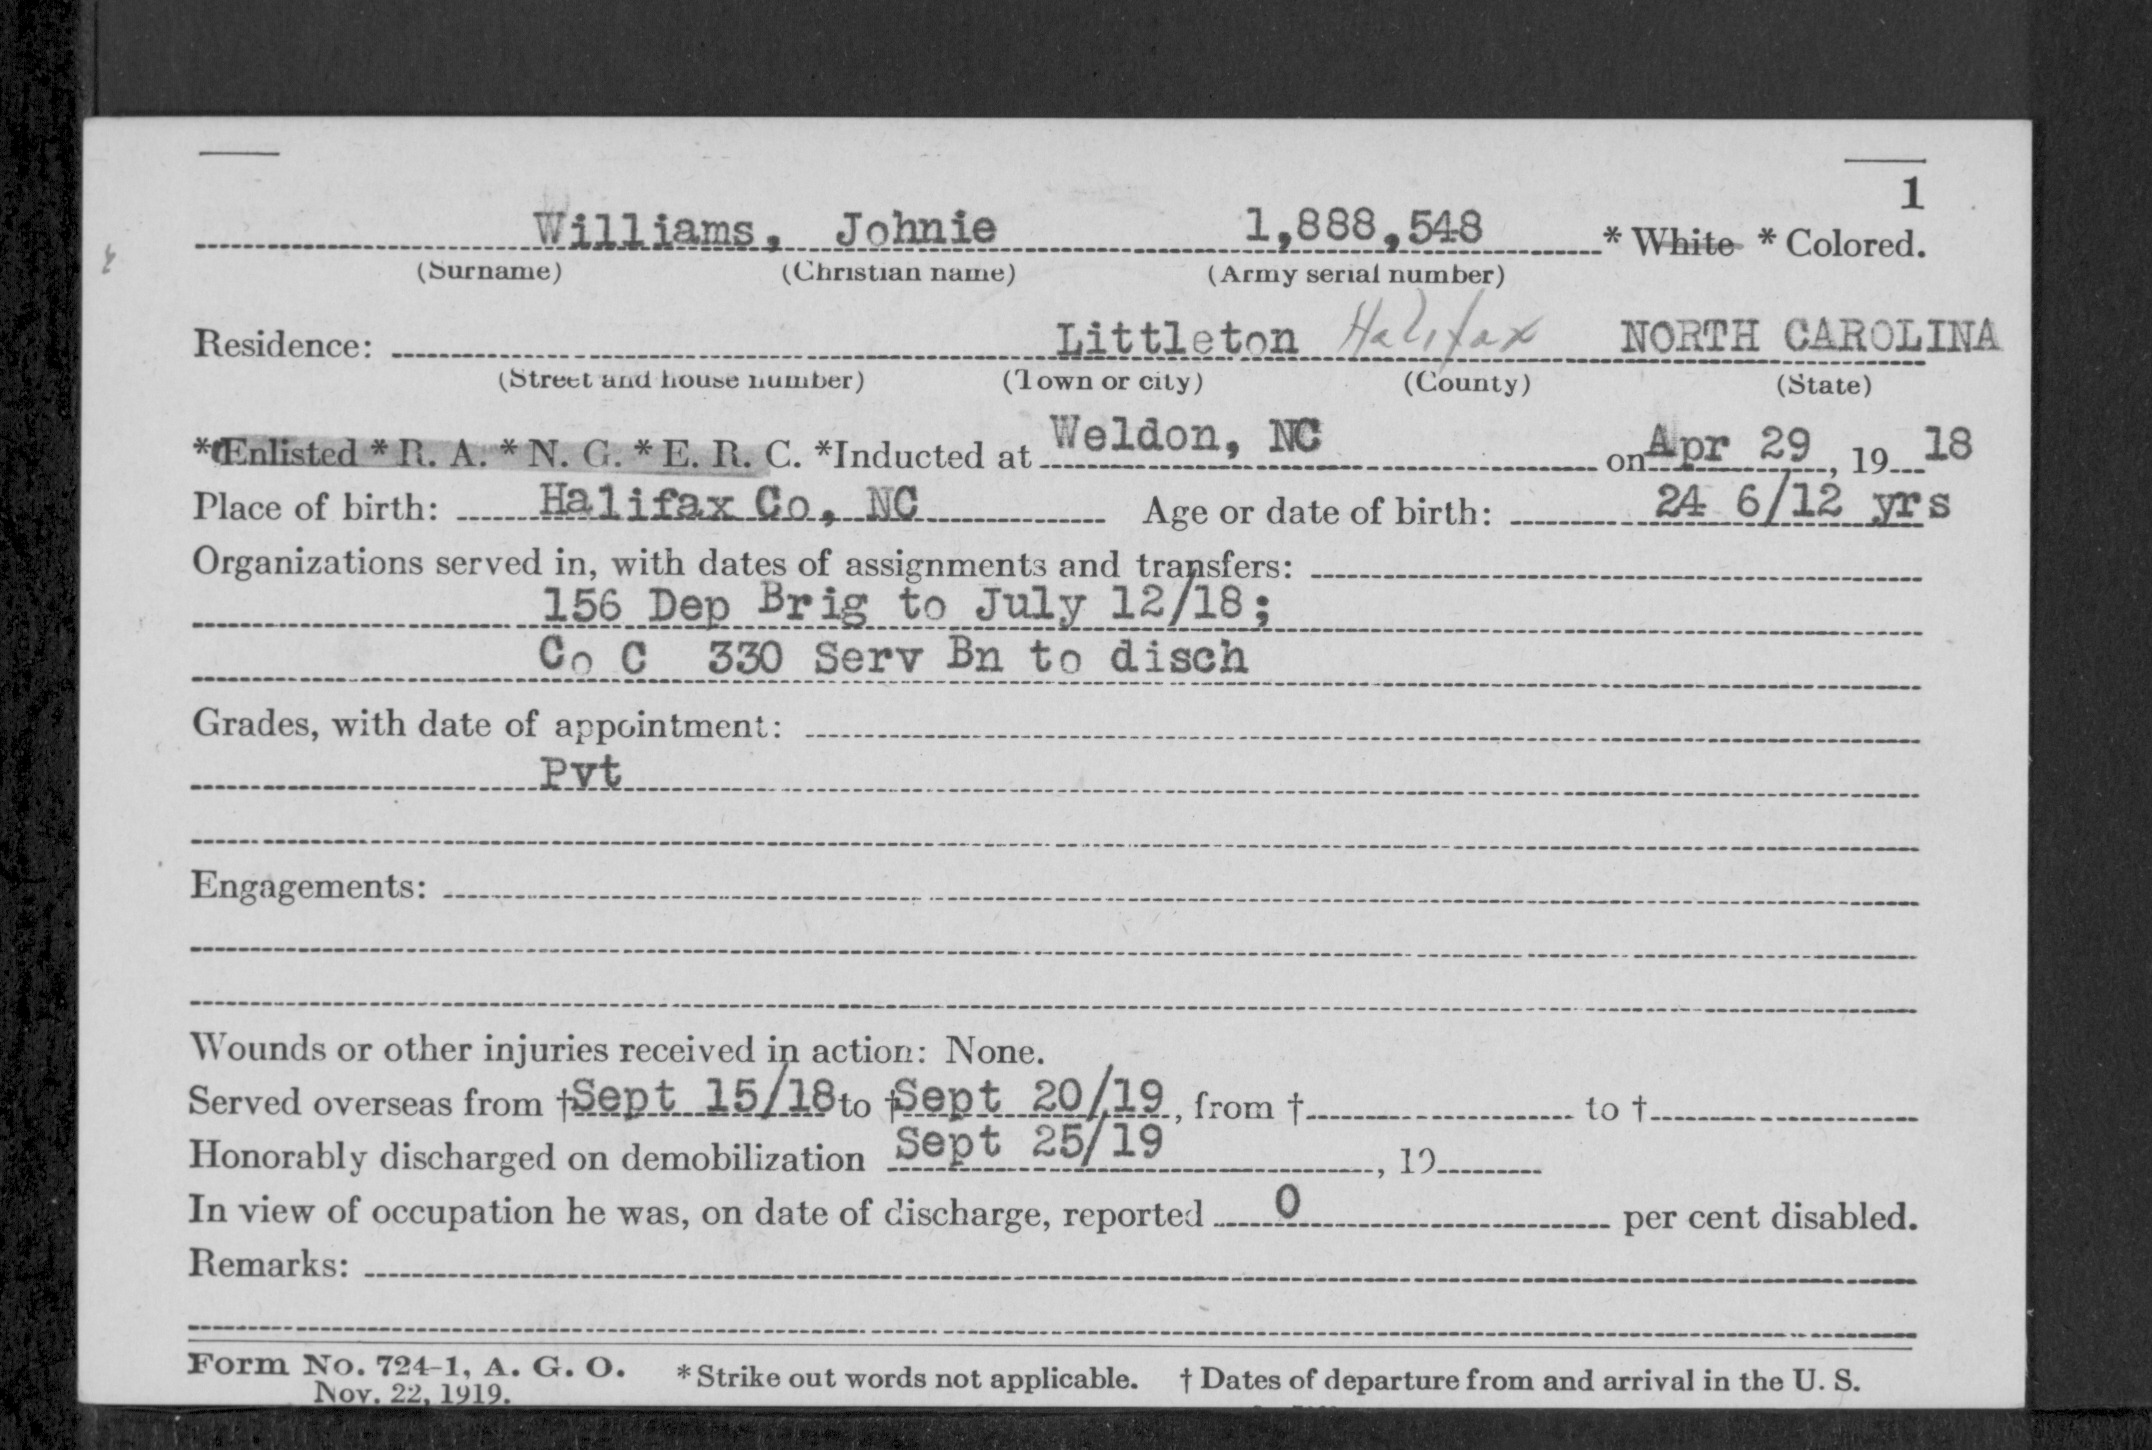 1
Williams, Johnie 1,888,548 * White * Colored.
(Surname) (Christian name) (Army serial number)
Residence: Littleton Halifax NORTH CAROLINA
(Street and house number) (Town or city) (County) (State)
*Enlisted * R. A. * N. G. * E. R. C. *Inducted at Weldon, NC on Apr 29, 19 18
Place of birth: Halifax Co, NC Age or date of birth: 24 6/12 yrs
Organizations served in, with dates of assignments and transfers:
156 Dep Brig to July 12/18;
Co C 330 Serv Bn to disch
Grades, with date of appointment:
Pvt
Engagements:
Wounds or other injuries received in action: None.
Served overseas from †Sept 15/18 to †Sept 20/19, from † to †
Honorably discharged on demobilization Sept 25/19, 19
In view of occupation he was, on date of discharge, reported 0 per cent disabled.
Remarks:
Form No. 724-1, A. G. O. *Strike out words not applicable. † Dates of departure from and arrival in the U. S.
Nov. 22, 1919.